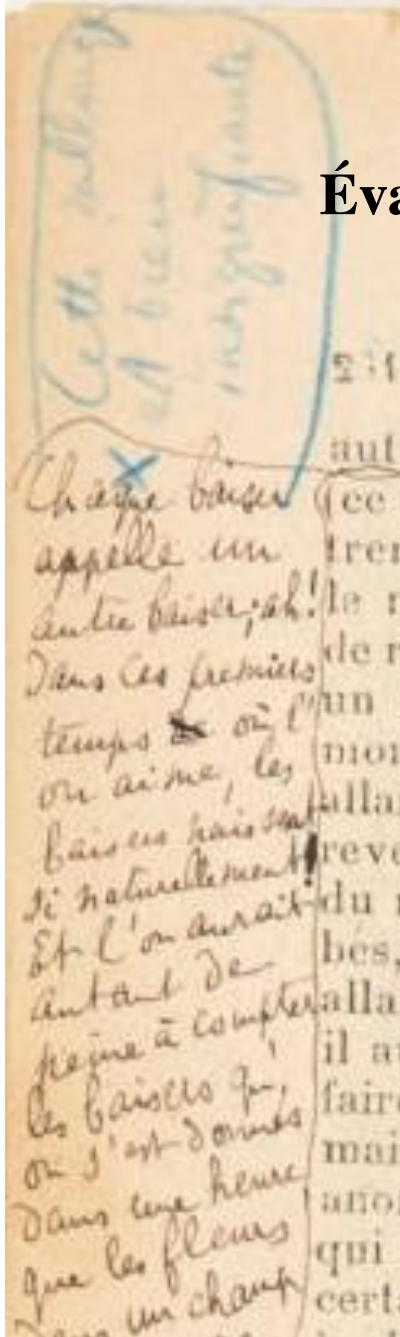 Cette
bien
insignifiante
Éva
aut
Chaque baiser
appelle un
autre baiser; ah!
Dans ces premiers
temps où l'
on aime, les
baisers naissent
si naturellement!
Et l'on aurait
autant de
peine à compter
les baisers qu'
on s'est donnés
Dans une heure
que les fleurs
Dans un champ
(ce
tren
le
de
un
mon
allai
reve
du
bés,
alla
il a
faire
mai
anor
qui
certa